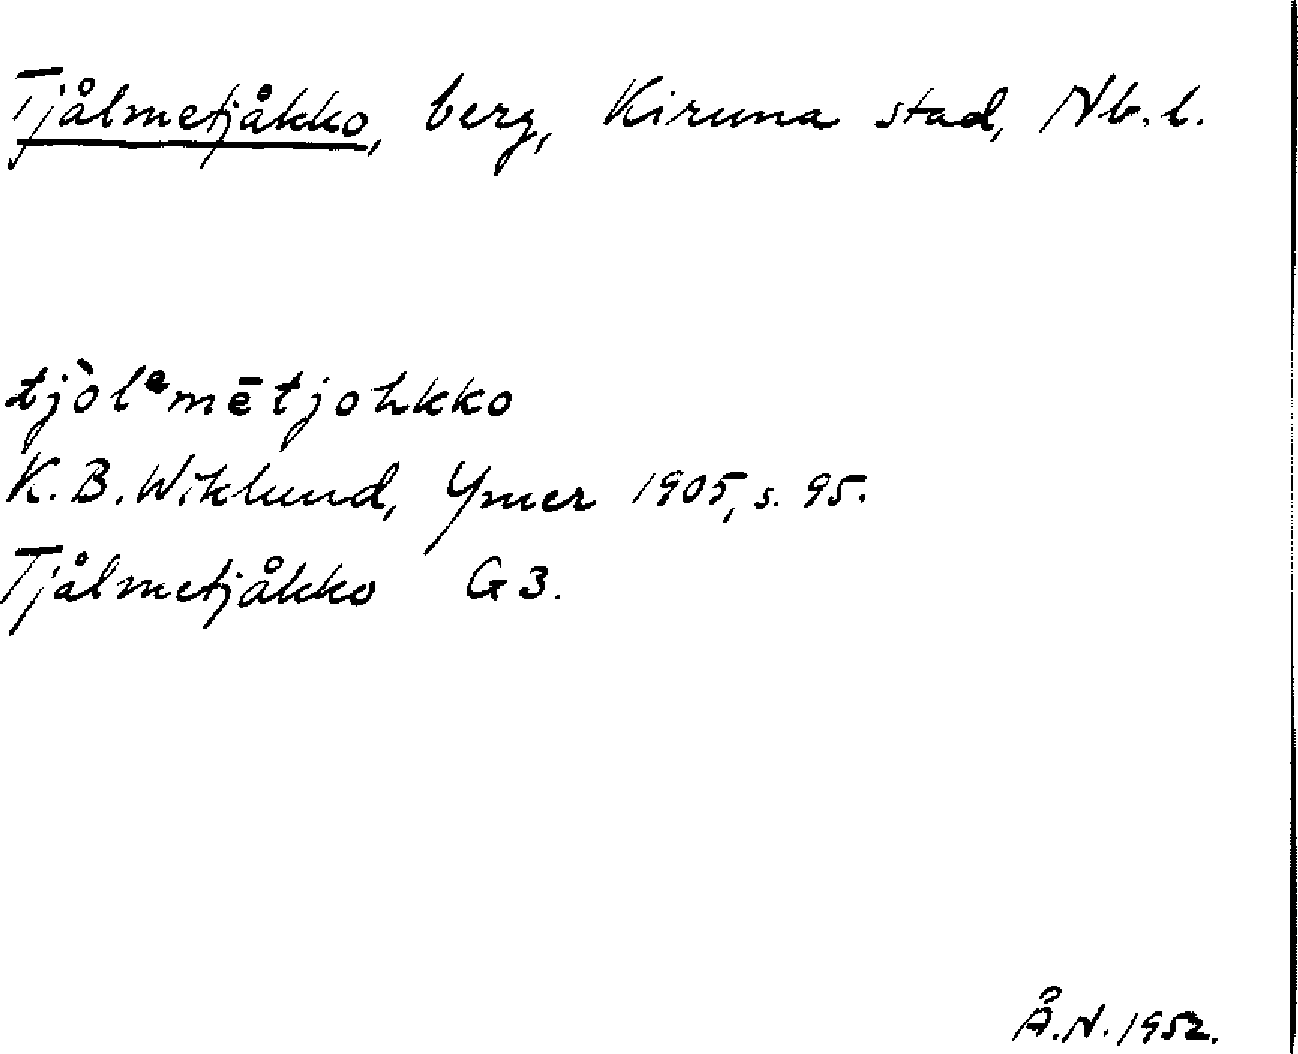 Tjålmetjåkko, berg, Kiruna stad, Nb.l.
tjòlᵉmētjohkko
K.B.Wiklund, Ymer 1905, s. 95.
Tjålmetjåkko G3.
Å.N.1952.